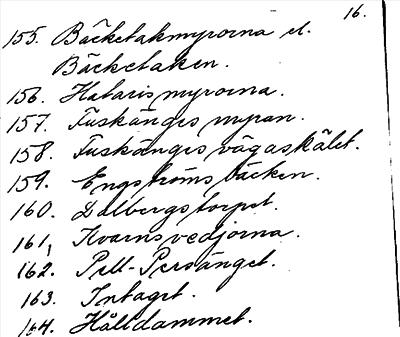 16.
155. Bäcketakmyrorna el.
Bäcketaken.
156. Hataris myrorna.
157. Tuskänges myran.
158. Tuskänges vägaskälet.
159. Engströms bäcken.
160. Dalbergstorpet.
161, Kvarnsvedjorna.
162. Pell-Persänget.
163. Intaget.
164. Hålldammet.